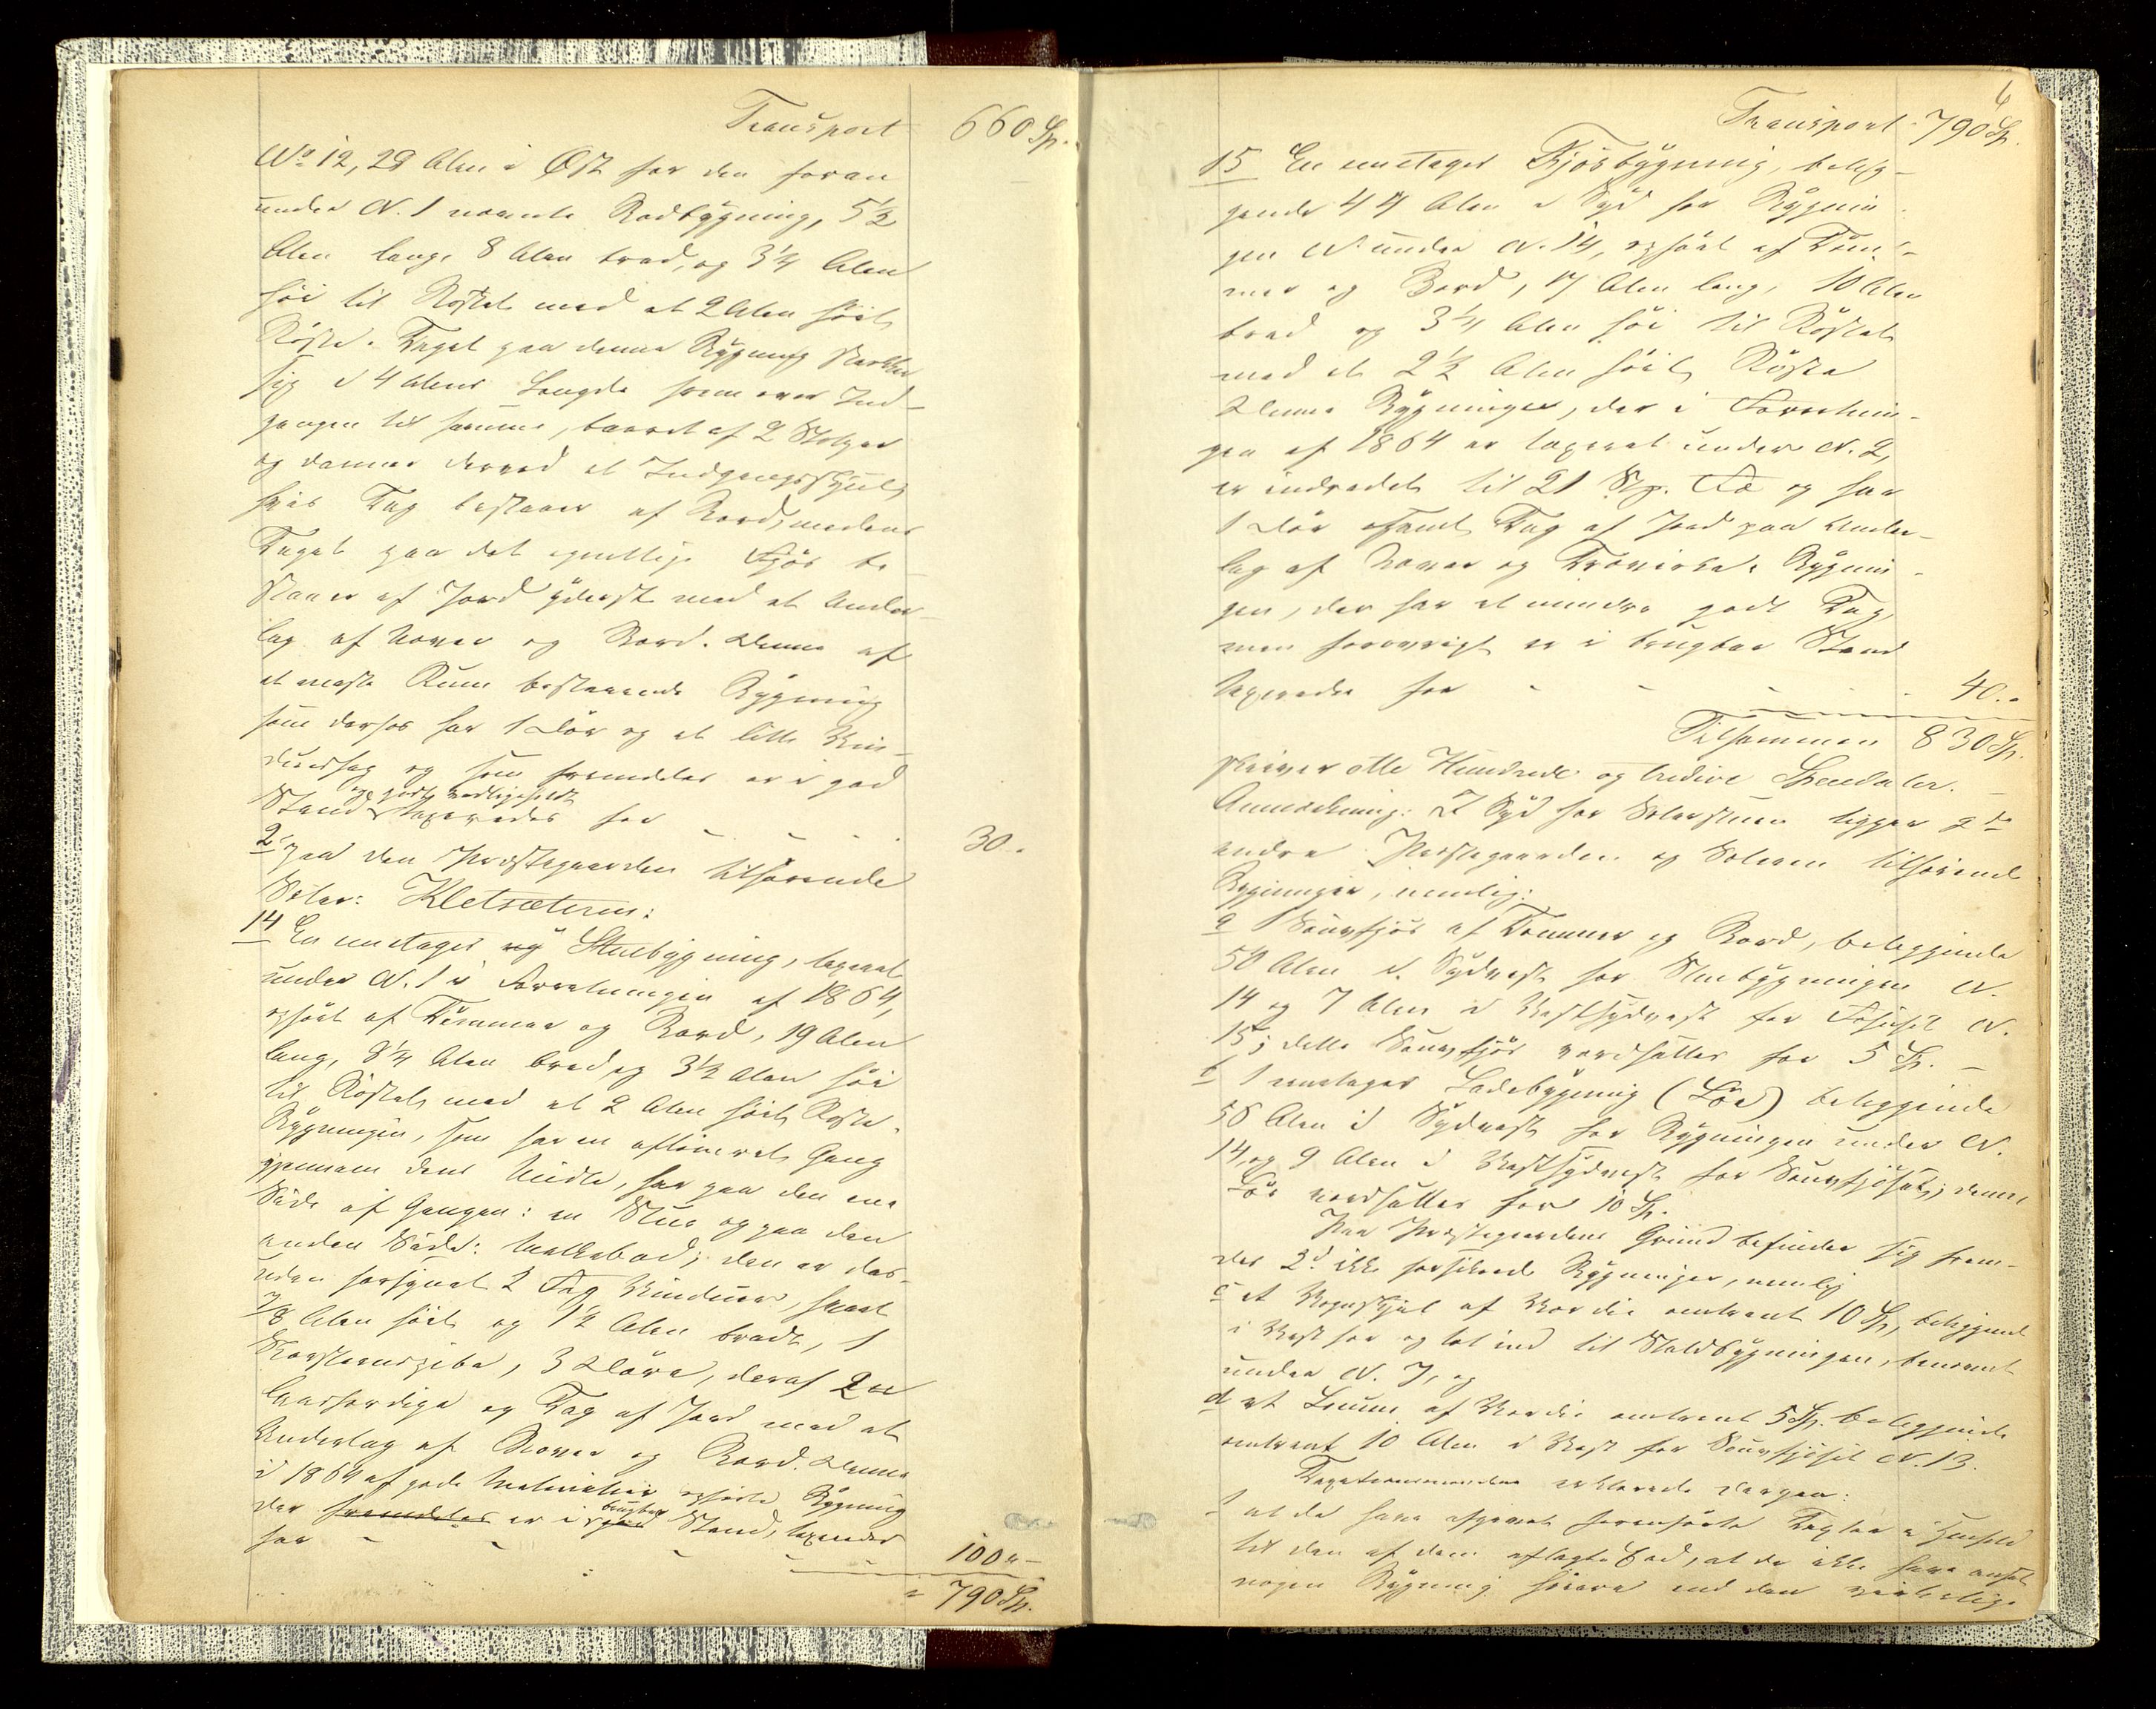 Transport 660 Sp.
No 12, 29 Alen i Øst for den foran
under N. 1 nævnte Rodbygning, 5½
Alen lang, 8 Alen bred, og 3¼ Alen
høi til Røstet med et 2 Alen høit
Røste. Taget paa denne Bygning strækker
sig i 4 Alens Længde frem over Ind-
gangen til samme, baaret af 2 Stolper
og danner derved et Indgangsskjul,
hvis Tag bestaaer af Bord, medens
Taget paa det egentlige Fjøs be-
staaer af Jord yderst med et Under-
lag af Næver og Bord. Denne af
et Rum bestaaende Bygning
som derhos har 1 Dør og et lidet Vin-
duesfag og som fremdeles er i god
og godt vedligeholdt
Stand taxeredes for - - - 30.
2. paa den Præstegaarden tilhørende
Sæter: Kletsæteren:
14 En enetages ny Stuebygning, taxeret
under N. 1 i Forretningen af 1864,
opført af Tømmer og Bord, 19 Alen
lang, 8¼ Alen bred og 3½ Alen høi
til Røstet, med et 2 Alen høit Røste.
Bygningen, som har en Gang
gjennem dens Midte, har paa den ene
Side af Gangen: en Stue og paa den
anden Side: Melkebod; den er des-
uden forsynet 2 Fag Vinduer, hvert
7/8 Alen høit og 1½ Alen bredt, 1
Skorsteenspibe, 3 Døre, deraf 2
laasfærdige og Tag af Jord med et
Underlag af Næver og Bord. Denne
i 1864 af gode Materialier opførte Bygning
der fremdeles er i brugbar god Stand, taxeredes
for - - - 100 „ -
790 Sp.
6
Transport 790 Sp.
15 En enetages Fjøsbygning, belig-
gende 44 Alen i Syd for Bygnin-
gen under N. 14, opført af Tøm-
mer og Bord, 17 Alen lang, 10 Alen
bred og 3¼ Alen høi til Røstet
med et 2½ Alen høit Røste
Denne Bygning, der i Forretnin-
gen af 1864 er taxeret under N. 2,
er indredet til 21 Stk. Fæ og har
1 Dør samt Tag af Jord paa Under-
lag af Næver og Troviske. Bygnin-
gen, der har et mindre godt Tag,
men forøvrigt er i brugbar Stand
taxeredes for - - - 40.„
Tilsammen 830 Sp.
skriver otte Hundrede og tredive Speciedaler.
Anmærkning: I Syd for Sæterstuen ligger 2de
andre Præstegaarden og Sæteren tilhørende
Bygninger, nemlig:
a 1 Sauefjøs af Tømmer og Bord, beliggende
50 Alen i Sydvest for Stuebygningen N.
14 og 7 Alen i Vestsydvest for Fjøset N.
15; dette Sauefjøs værdsættes for 5 Sp. -
b 1 enetages Ladebygning (Løe) beliggende
58 Alen i Sydvest for Bygningen under N.
14, og 9 Alen i Vestsydvest for Sauefjøset; denne
Løe værdsættes for 10 Sp.
Paa Præstegaardens Grund befinder sig frem-
des 2de ikke forsikrede Bygninger, nemlig
c et Vognskjul af Værdie omtrent 10 Sp, beliggende
i Vest for og tæt ind til Staldbygningen, benævnt
under N. 7, og
d et af Værdie omtrent 5 Sp. beliggende
omtrent 10 Alen i Vest for Sauefjøset N. 13.
Taxationsmændene erklærede derpaa:
1 at de have afgivet foranførte Taxter i Henhold
til den af dem aflagte Eed, at de ikke have ansat
nogen Bygning høiere end den virkelige